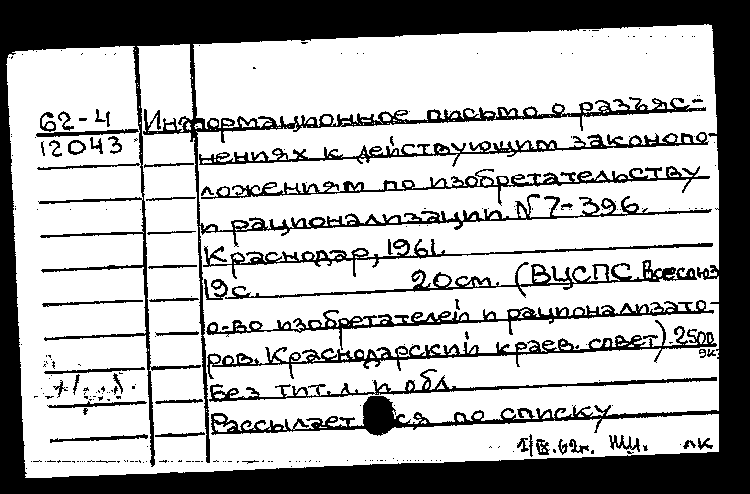 62-4 Информационное письмо о разъяс-
12043 нениях к действующим законопо-
ложениям по изобретательству
и рационализации. N 7-396.
Краснодар, 1961.
19с. 20см. (ВЦСПС. Всесоюз
о-во изобретателей и рационализато-
ров. Краснодарский краев. совет) 2500
экз
Без тит. л. и обл.
Рассылается по списку